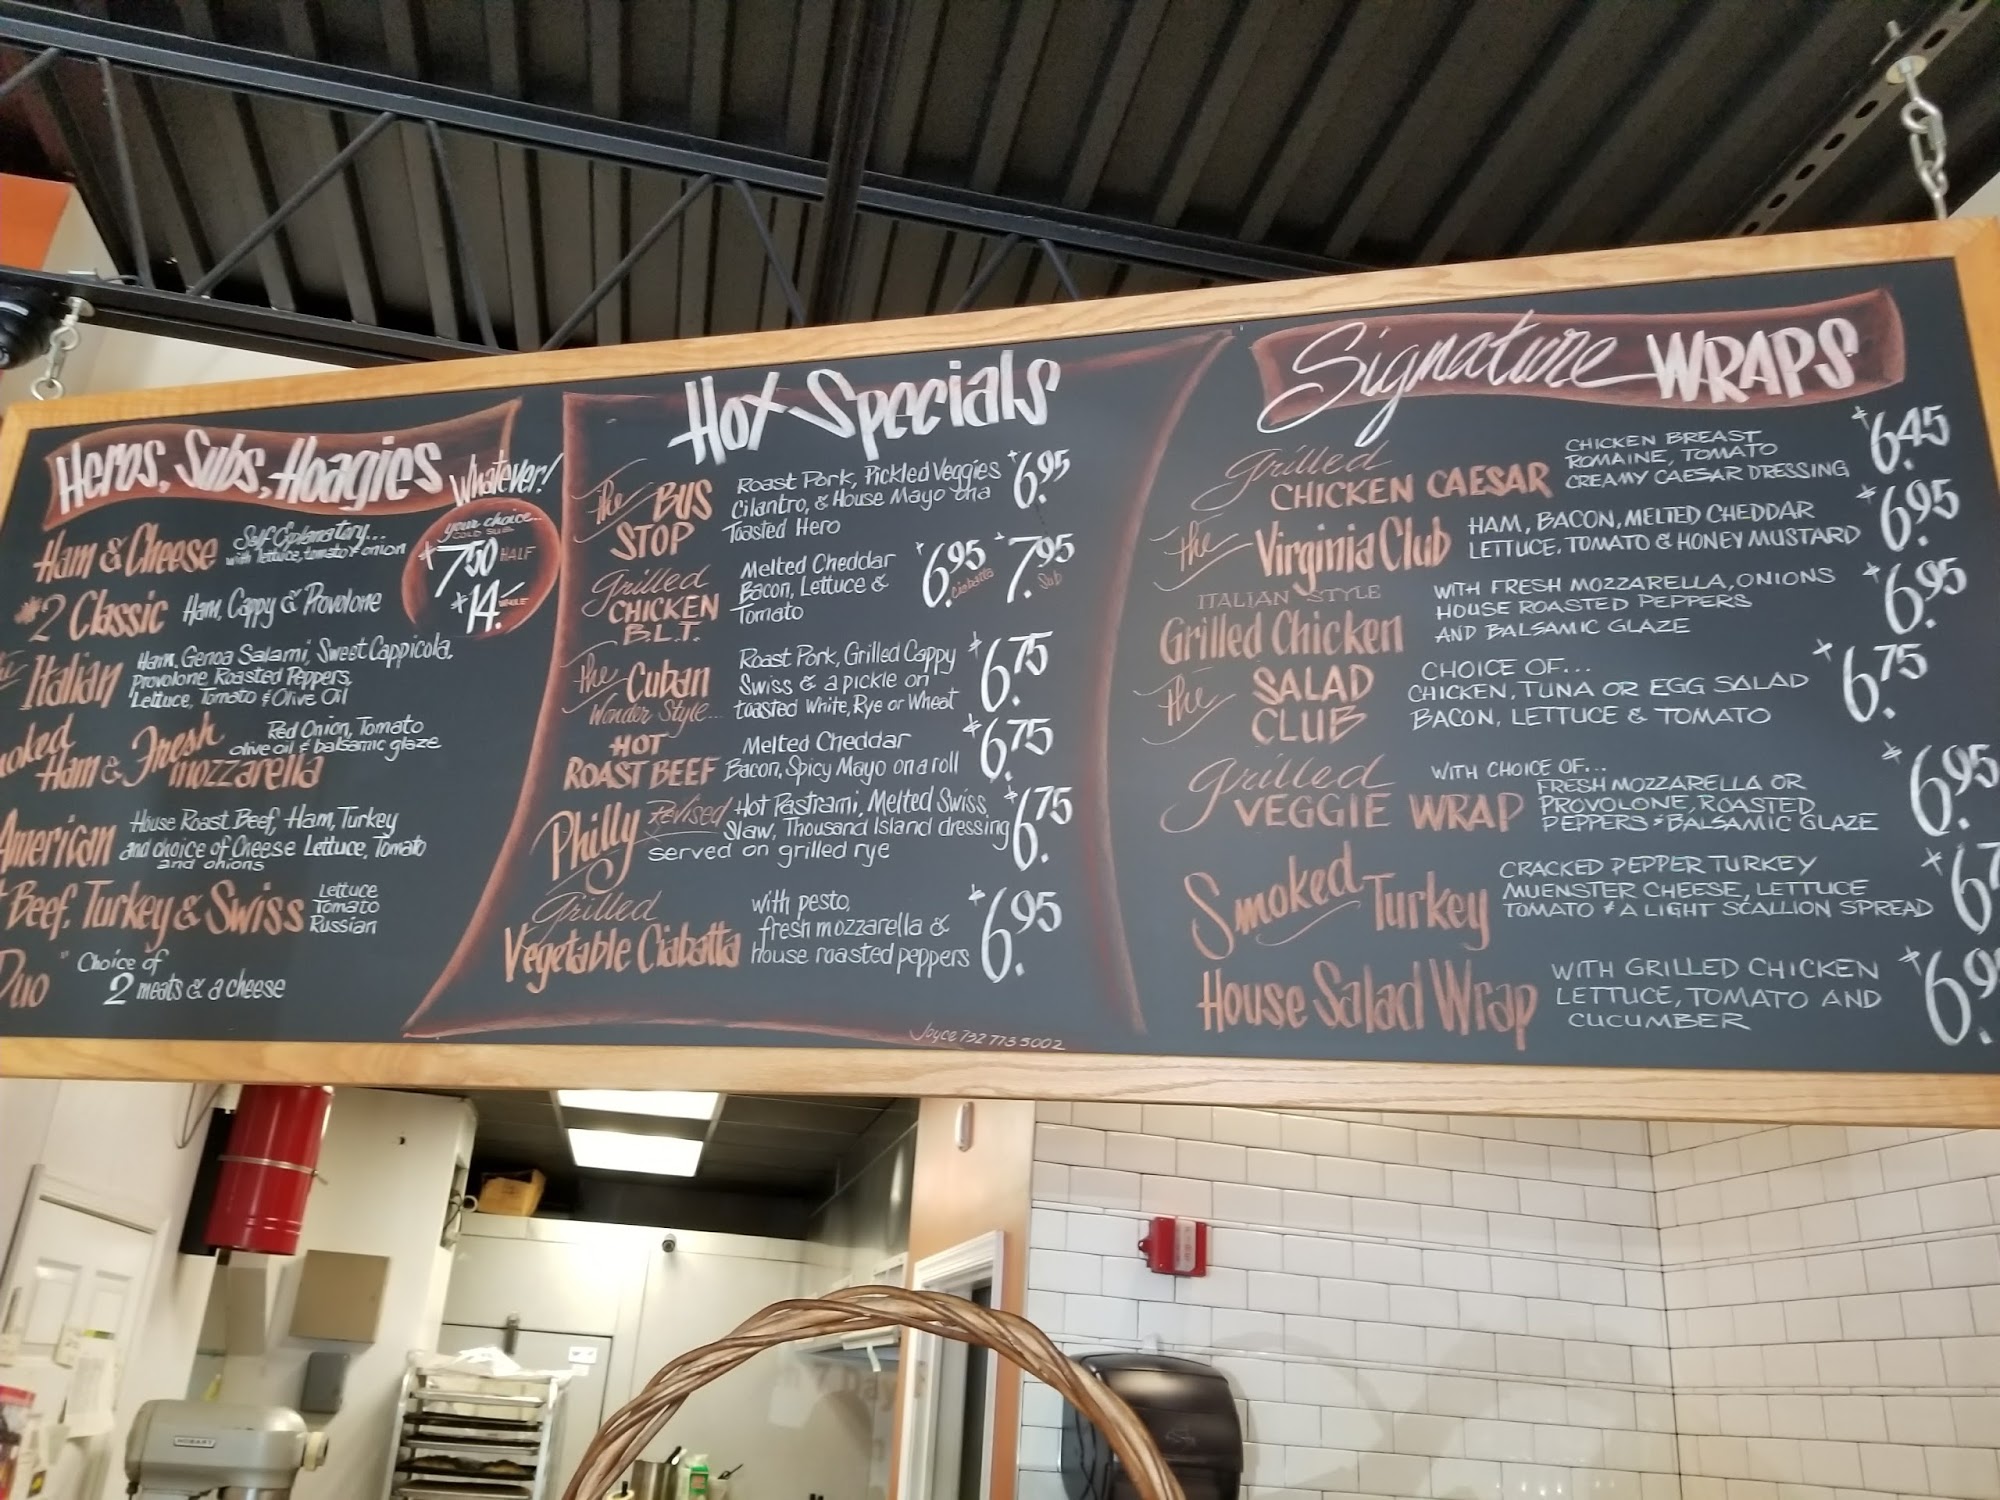 Heros, Subs, Hoagies Whatever!
your choice...
COLD SUB
$7.50 HALF
$14. WHOLE
Ham & Cheese Self Explanatory...
with lettuce, tomato & onion
#2 Classic Ham, Cappy & Provolone
Italian Ham, Genoa Salami, Sweet Cappicola,
Provolone, Roasted Peppers,
Lettuce, Tomato & Olive Oil
Ham & Fresh mozzarella
Red Onion, Tomato
olive oil & balsamic glaze
American House Roast Beef, Ham, Turkey
and choice of Cheese Lettuce, Tomato
and onions
Beef, Turkey & Swiss
Lettuce
Tomato
Russian
Duo" Choice of
2 meats & a cheese
Hot Specials
The BUS STOP
Roast Pork, Pickled Veggies
Cilantro, & House Mayo on a
Toasted Hero
$6.95
Grilled
CHICKEN
B.L.T.
Melted Cheddar
Bacon, Lettuce &
Tomato
$6.95 Ciabatta $7.95 Sub
The Cuban
Wonder Style...
Roast Pork, Grilled Cappy
Swiss & a pickle on
toasted White, Rye or Wheat
$6.75
HOT
ROAST BEEF
Melted Cheddar
Bacon, Spicy Mayo on a roll
$6.75
Philly Revised Hot Pastrami, Melted Swiss
Slaw, Thousand Island dressing
served on grilled rye
$6.75
Grilled
Vegetable Ciabatta
with pesto,
fresh mozzarella &
house roasted peppers
$6.95
Joyce 732 773 5002
Signature WRAPS
Grilled
CHICKEN CAESAR
CHICKEN BREAST
ROMAINE, TOMATO
CREAMY CAESAR DRESSING
$6.45
The Virginia Club
HAM, BACON, MELTED CHEDDAR
LETTUCE, TOMATO & HONEY MUSTARD
$6.95
ITALIAN STYLE
Grilled Chicken
WITH FRESH MOZZARELLA, ONIONS
HOUSE ROASTED PEPPERS
AND BALSAMIC GLAZE
$6.95
The SALAD
CLUB
CHOICE OF...
CHICKEN, TUNA OR EGG SALAD
BACON, LETTUCE & TOMATO
$6.75
Grilled
VEGGIE WRAP
WITH CHOICE OF...
FRESH MOZZARELLA OR
PROVOLONE, ROASTED
PEPPERS & BALSAMIC GLAZE
$6.95
Smoked Turkey
CRACKED PEPPER TURKEY
MUENSTER CHEESE, LETTUCE
TOMATO & A LIGHT SCALLION SPREAD
House Salad Wrap
WITH GRILLED CHICKEN
LETTUCE, TOMATO AND
CUCUMBER
HOBART